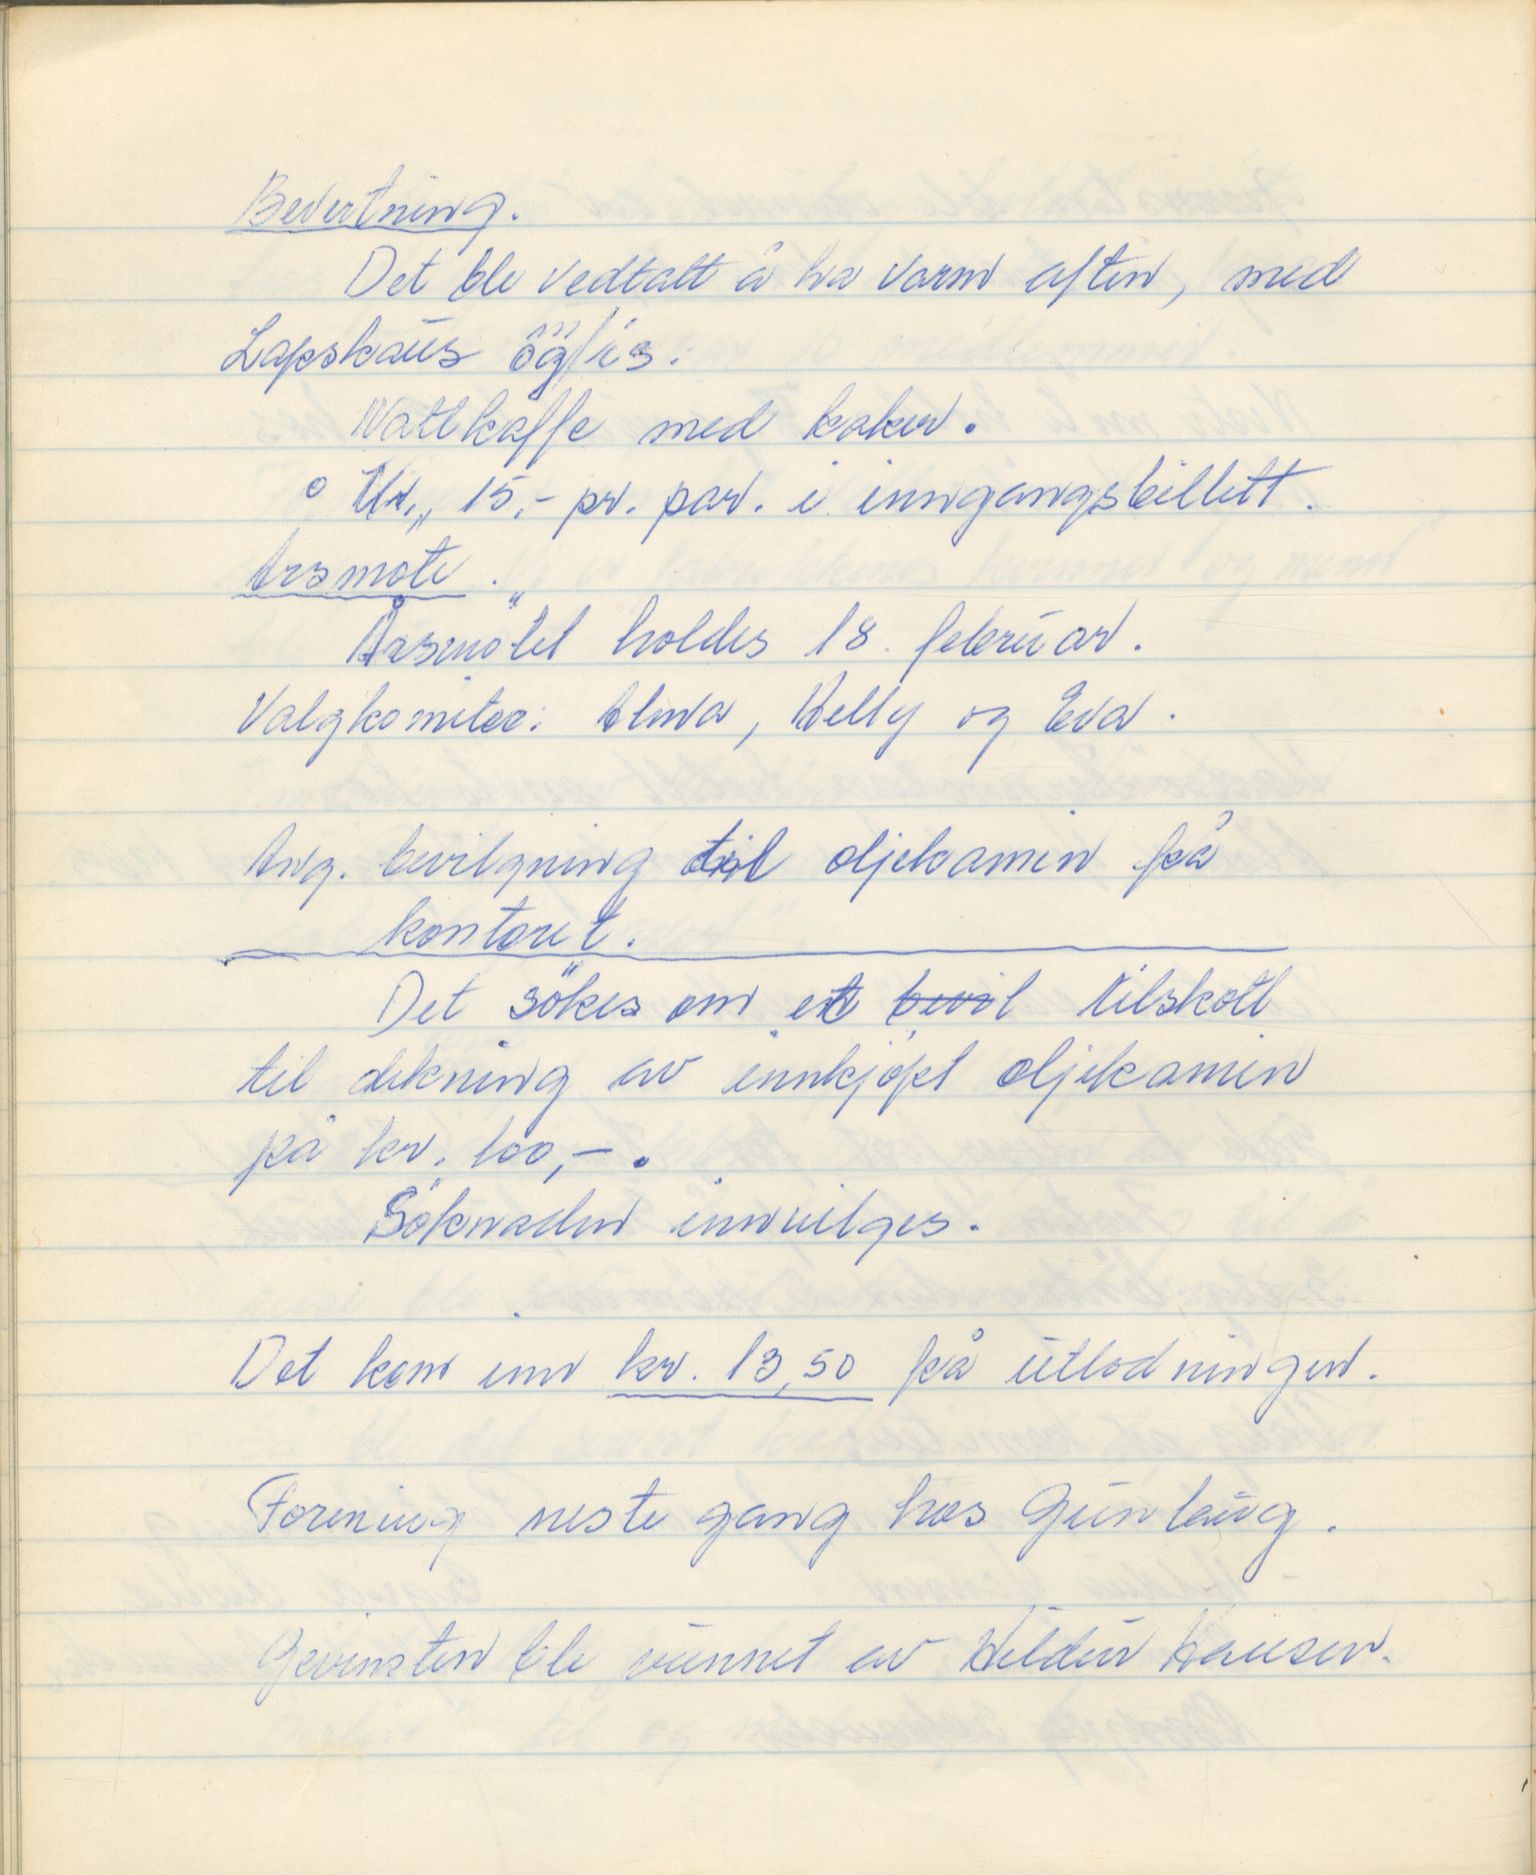 Bevertning.
Det ble vedtatt å ha varm aften, med
Lapskaus og is.
Nattkaffe med kaker.
Kr. 15,- pr. par. i inngangsbillett.
Årsmöte.
Årsmötet holdes 18. februar.
Valgkomitee: Alma, Kelly og Eva.
Ang. bevilgning til oljekamin på
kontoret.
Det sökes om et bevil tilskott
til dekning av innkjøpt oljekamin
på kr. 100,-.
Söknaden innvilges.
Det kom inn kr. 13,50 på utlodningen.
Forening neste gang hos Gunlaug.
Gevinsten ble vunnet av Hildur Hansen.